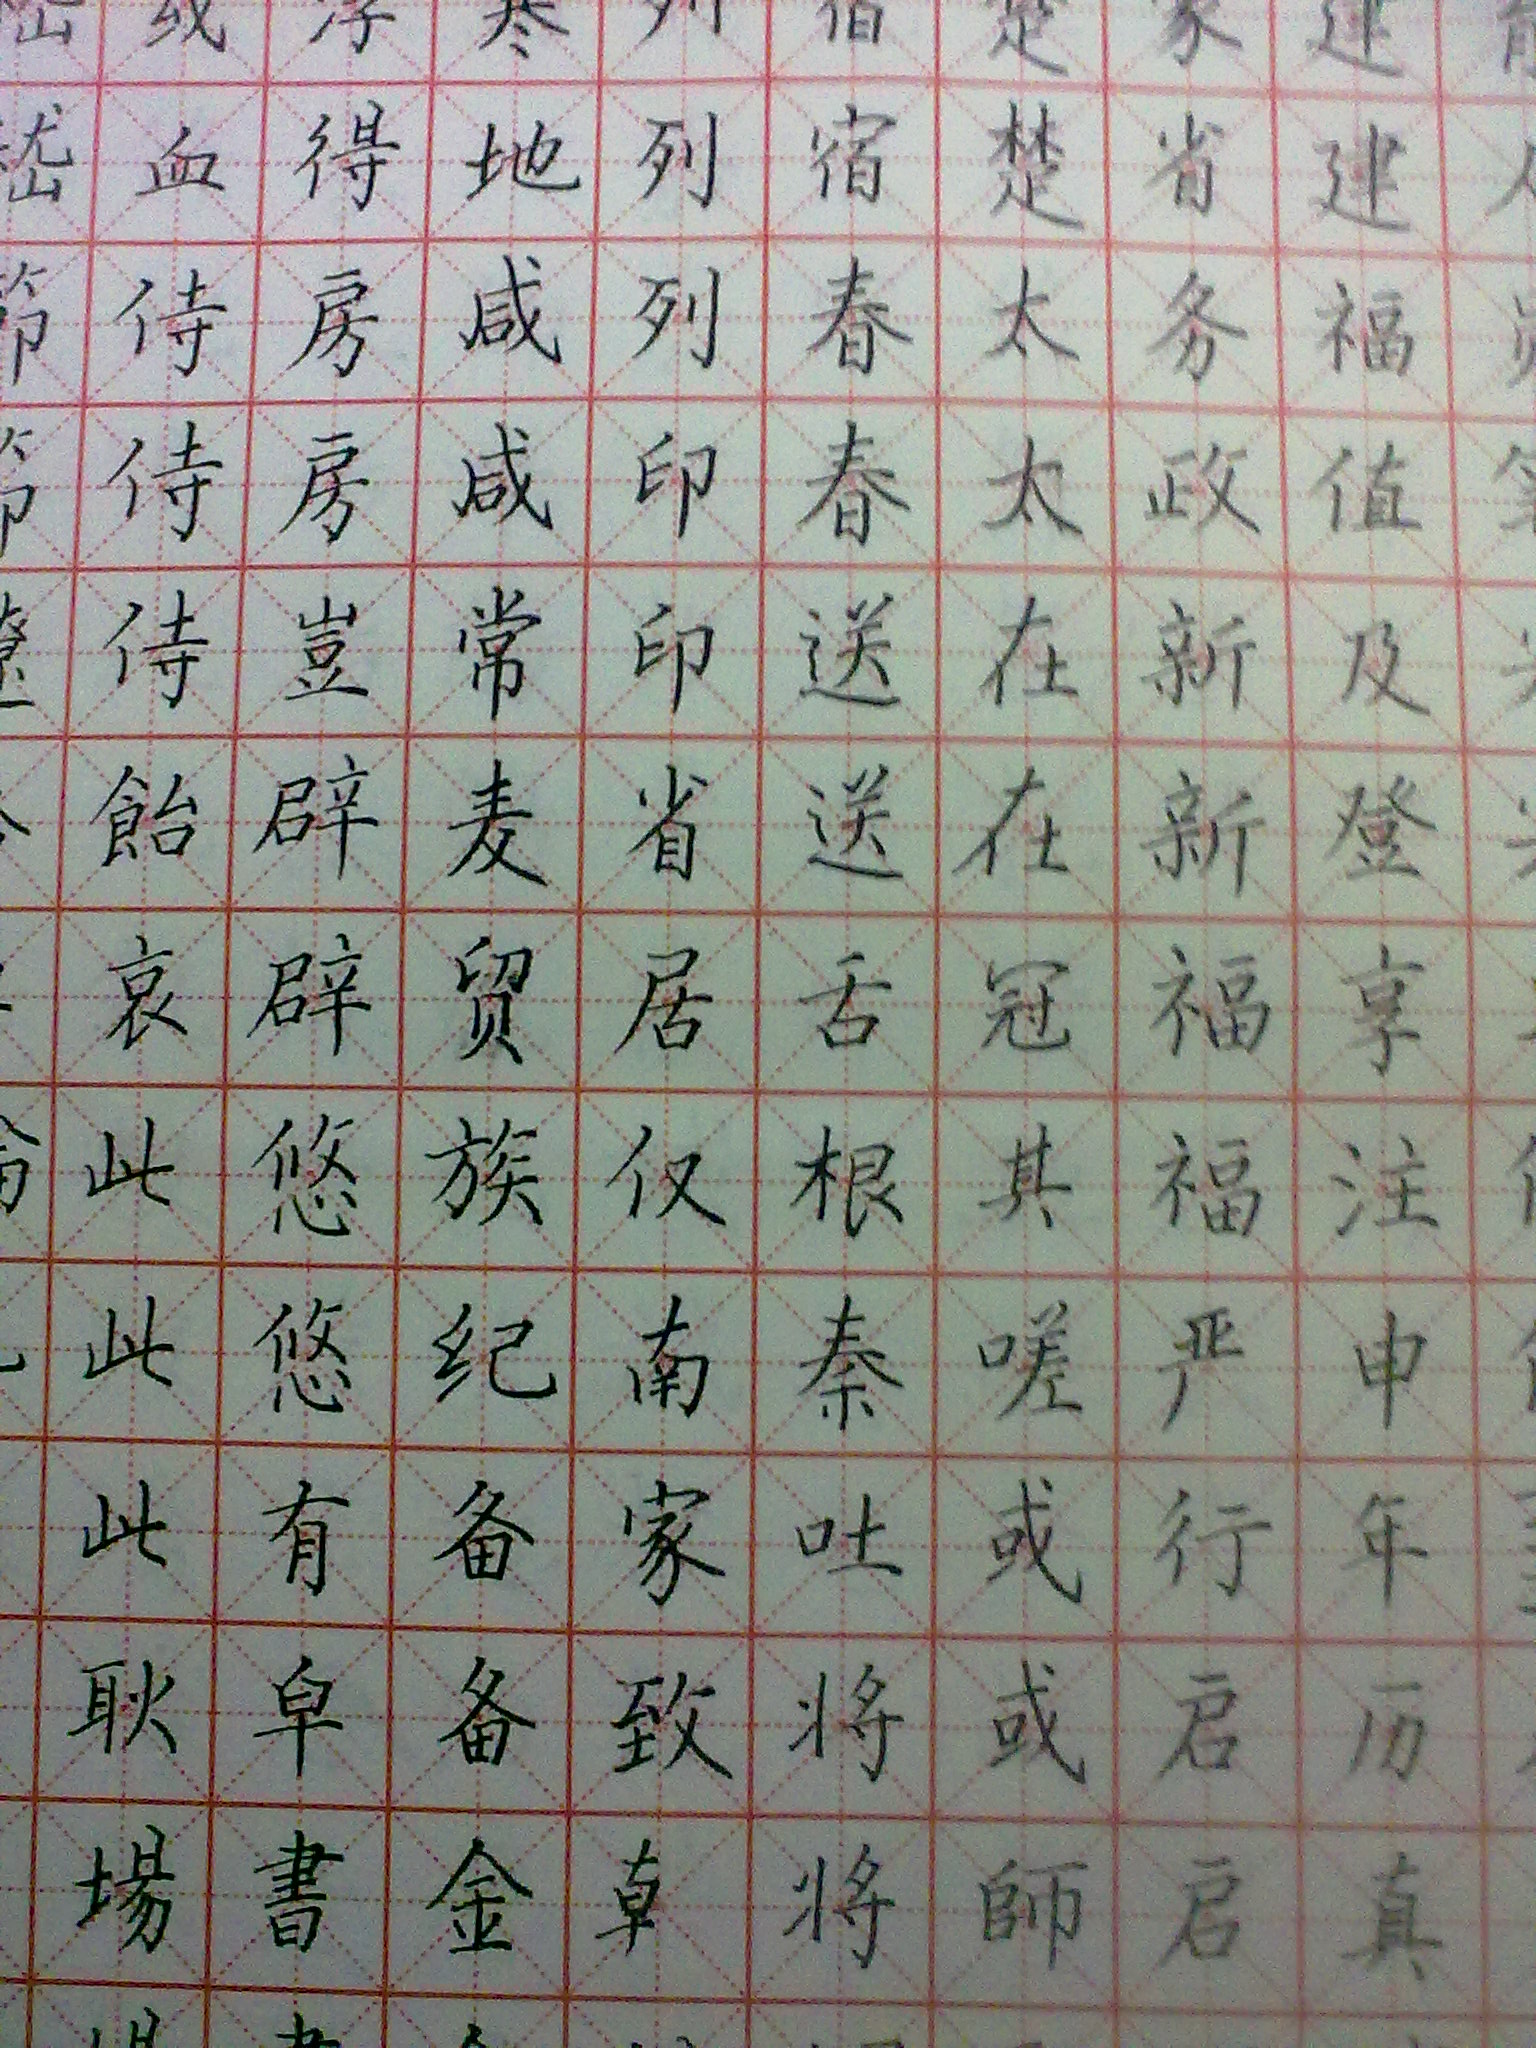 建建福值及登享注申年历真
家省务政新新福福严行启启
楚楚太太在在冠其嗟或或師
宿宿春春送送舌根秦吐将将
列列列印印省居仅南家致
寒地咸咸常麦贸族纪备备金
得房房豈辟辟悠悠有皁書
血侍侍侍飴哀此此此耿場